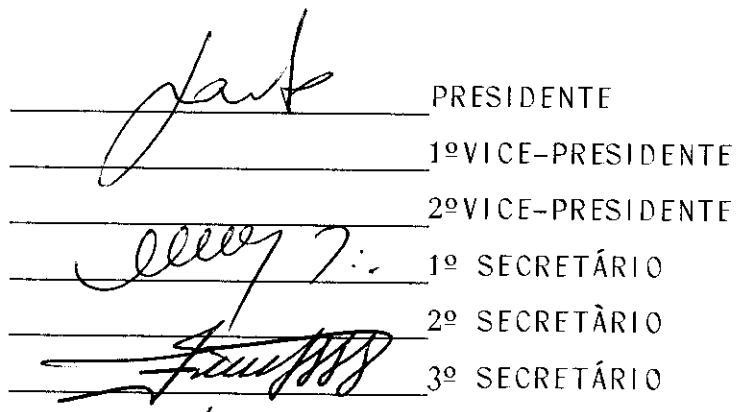 PRESIDENTE
1º VICE-PRESIDENTE
2º VICE-PRESIDENTE
1º SECRETÁRIO
2º SECRETÀRIO
3º SECRETÁRIO